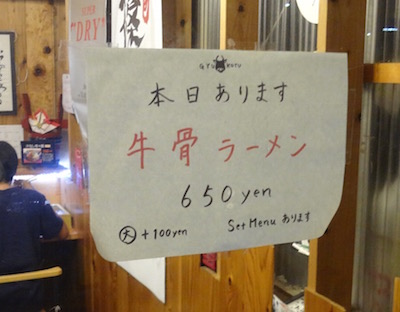 SUPER
"DRY"
GYU KOTU
本日あります
牛骨ラーメン
650yen
大 +100yen
Set Menu あります